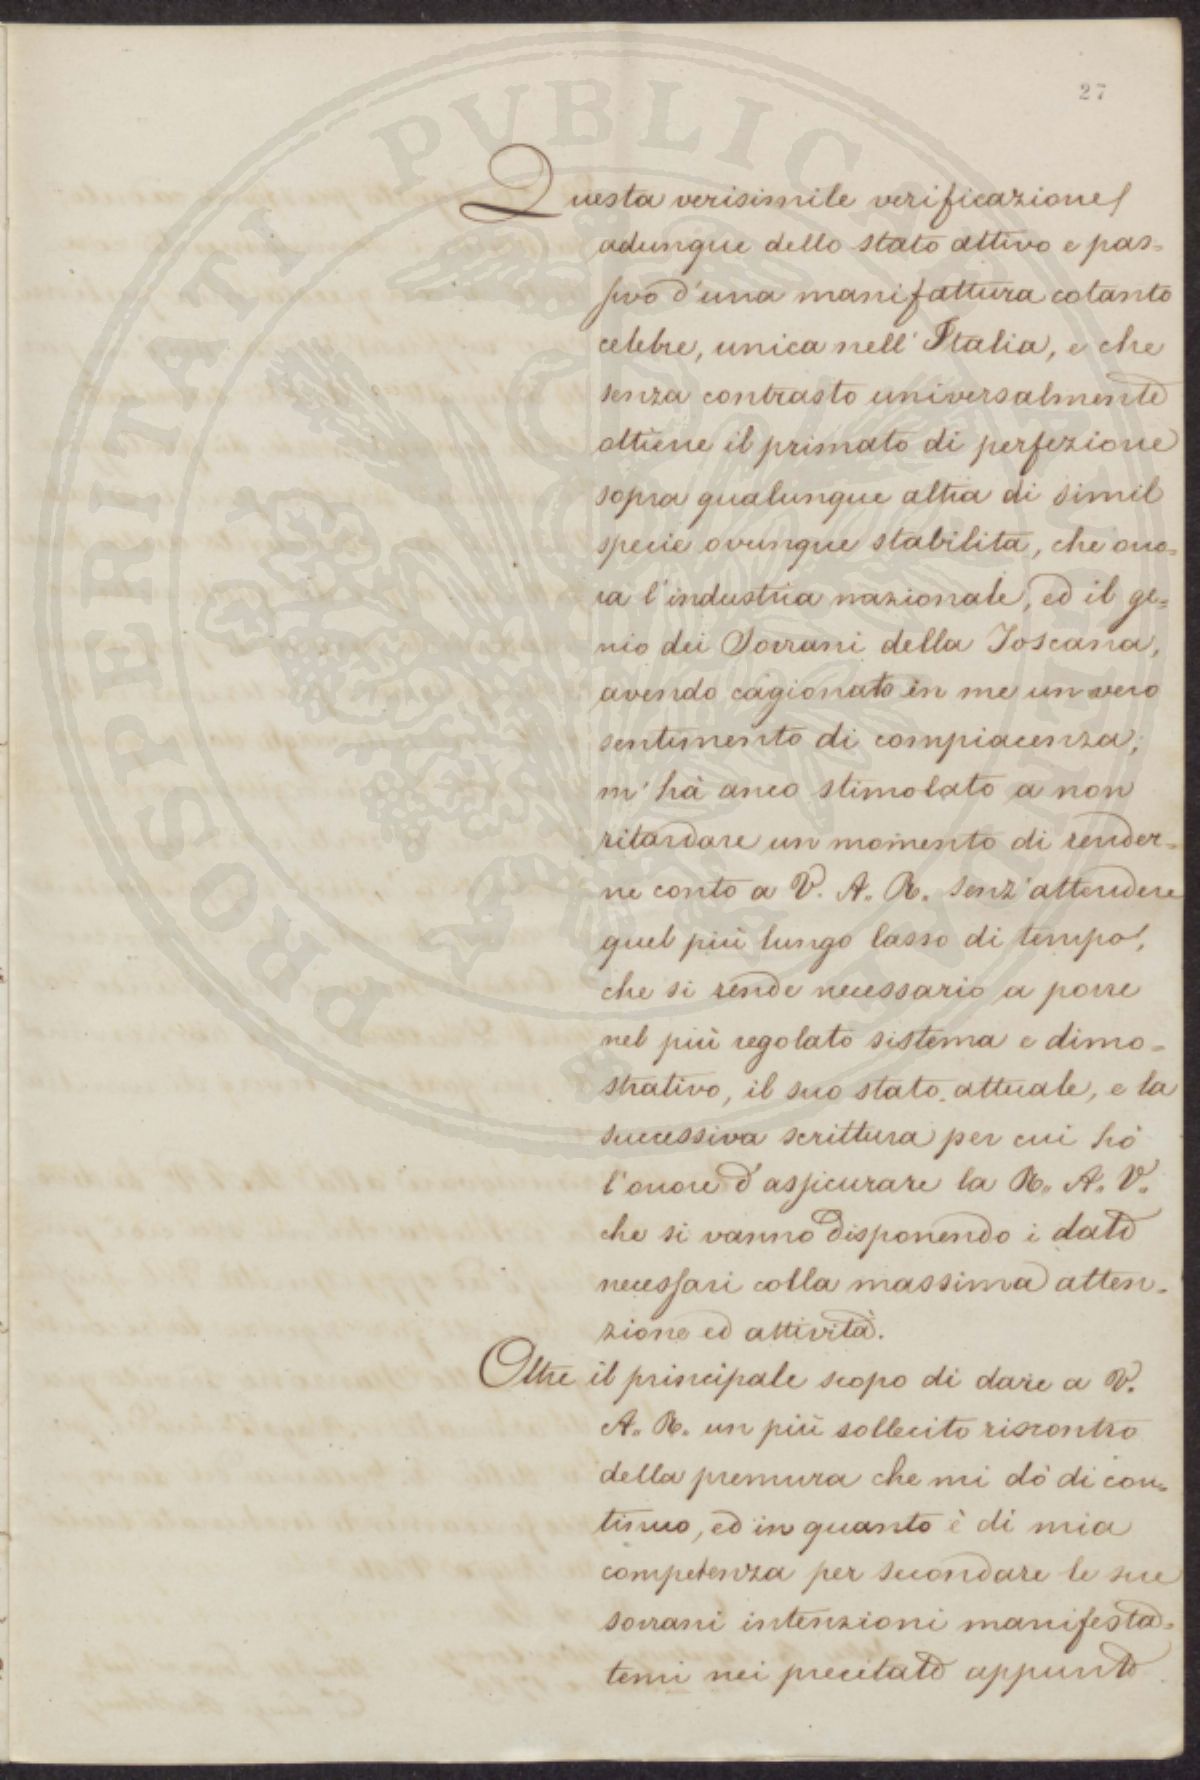 27
PROSPERITATI PUBLICAE
Questa verisimile verificazione
adunque dello stato attivo e pas=
sivo d'una manifattura cotanto
celebre, unica nell' Italia, e che
senza contrasto universalmente
ottiene il primato di perfezione
sopra qualunque altra di simil
specie ovunque stabilita, che ono=
ra l'industria nazionale, ed il ge=
nio dei Sovrani della Toscana,
avendo cagionato in me un vero
sentimento di compiacenza,
m' hà anco stimolato a non
ritardare un momento di render=
ne conto a V. A. R. senz'attendere
quel più lungo lasso di tempo,
che si rende necessario a porre
nel più regolato sistema e dimo=
strativo, il suo stato attuale, e la
successiva scrittura per cui hò
l'onore d'assicurare la R. A. V.
che si vanno disponendo i dati
necessari colla massima atten=
zione ed attività.
Oltre il principale scopo di dare a V.
A. R. un più sollecito riscontro
della premura che mi dò di con=
tinuo, ed in quanto è di mia
competenza per secondare le sue
sovrani intenzioni manifesta=
temi nei precitati appunti